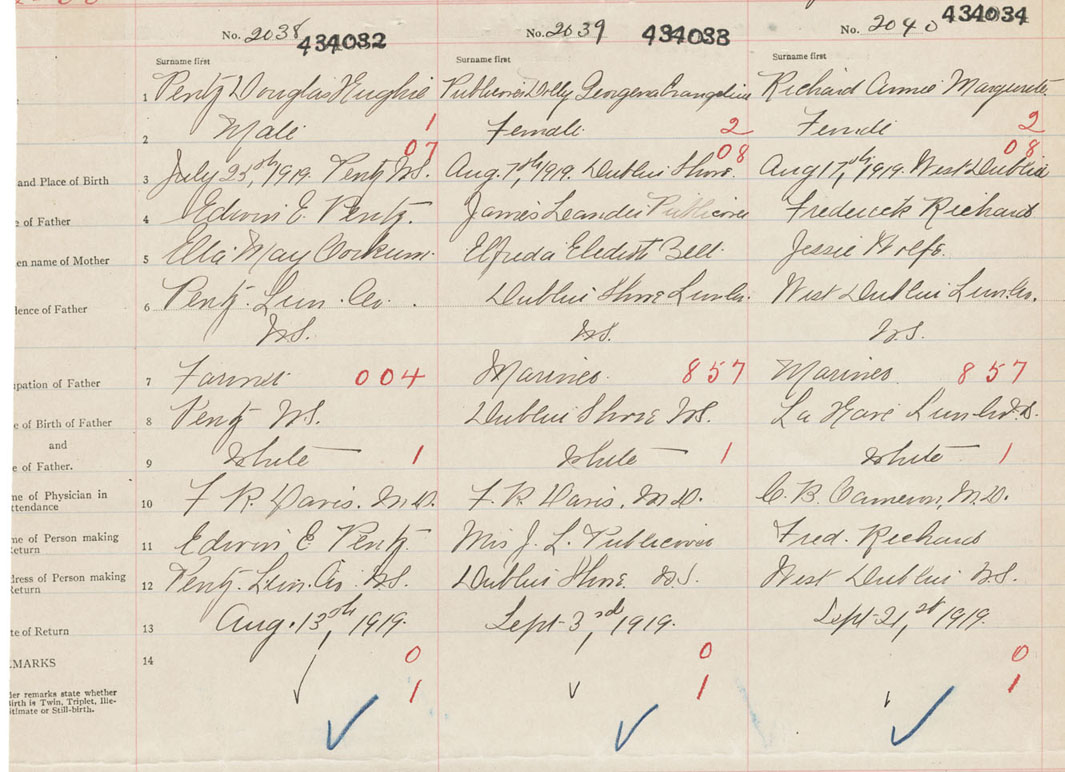 No. 2038 434032
No. 2039 434033
No. 2040 434034
Surname first
Surname first
Surname first
1 Pentz Douglas Hughie
Publicover Dolly Georgena Evangeline
Richard Annie Marguerite
2 Male 1
Female 2
Female 2
07
08
08
and Place of Birth 3 July 25th, 1919. Pentz N.S.
Aug. 7th, 1919. Dublin Shore.
Aug 17th, 1919. West Dublin
e of Father 4 Edwin E. Pentz.
James Leander Publicover
Frederick Richard
en name of Mother 5 Ella May Corkum.
Elfreda Bell
Jessie Wolfe.
dence of Father 6 Pentz. Lun. Co.
Dublin Shore Lun Co.
West Dublin Lun. Co.
N.S.
N.S.
N.S.
pation of Father 7 Farmer 004
Mariner 857
Mariner 857
e of Birth of Father 8 Pentz N.S.
Dublin Shore N.S.
La Have Lun Co N.S.
and
e of Father. 9 White 1
White 1
White 1
me of Physician in
ttendance 10 F. R. Davis. M.D.
F. R. Davis. M.D.
C. B. Cameron, M.D.
me of Person making
Return 11 Edwin E Pentz.
Mrs J. L. Publicover
Fred. Richard
dress of Person making
Return 12 Pentz. Lun. Co. N.S.
Dublin Shore. N.S.
West Dublin N.S.
te of Return 13 Aug. 13th, 1919.
Sept 3rd, 1919.
Sept 21st, 1919.
EMARKS 14 0
0
0
der remarks state whether
Birth is Twin, Triplet, Ille-
gitimate or Still-birth.
1
1
1